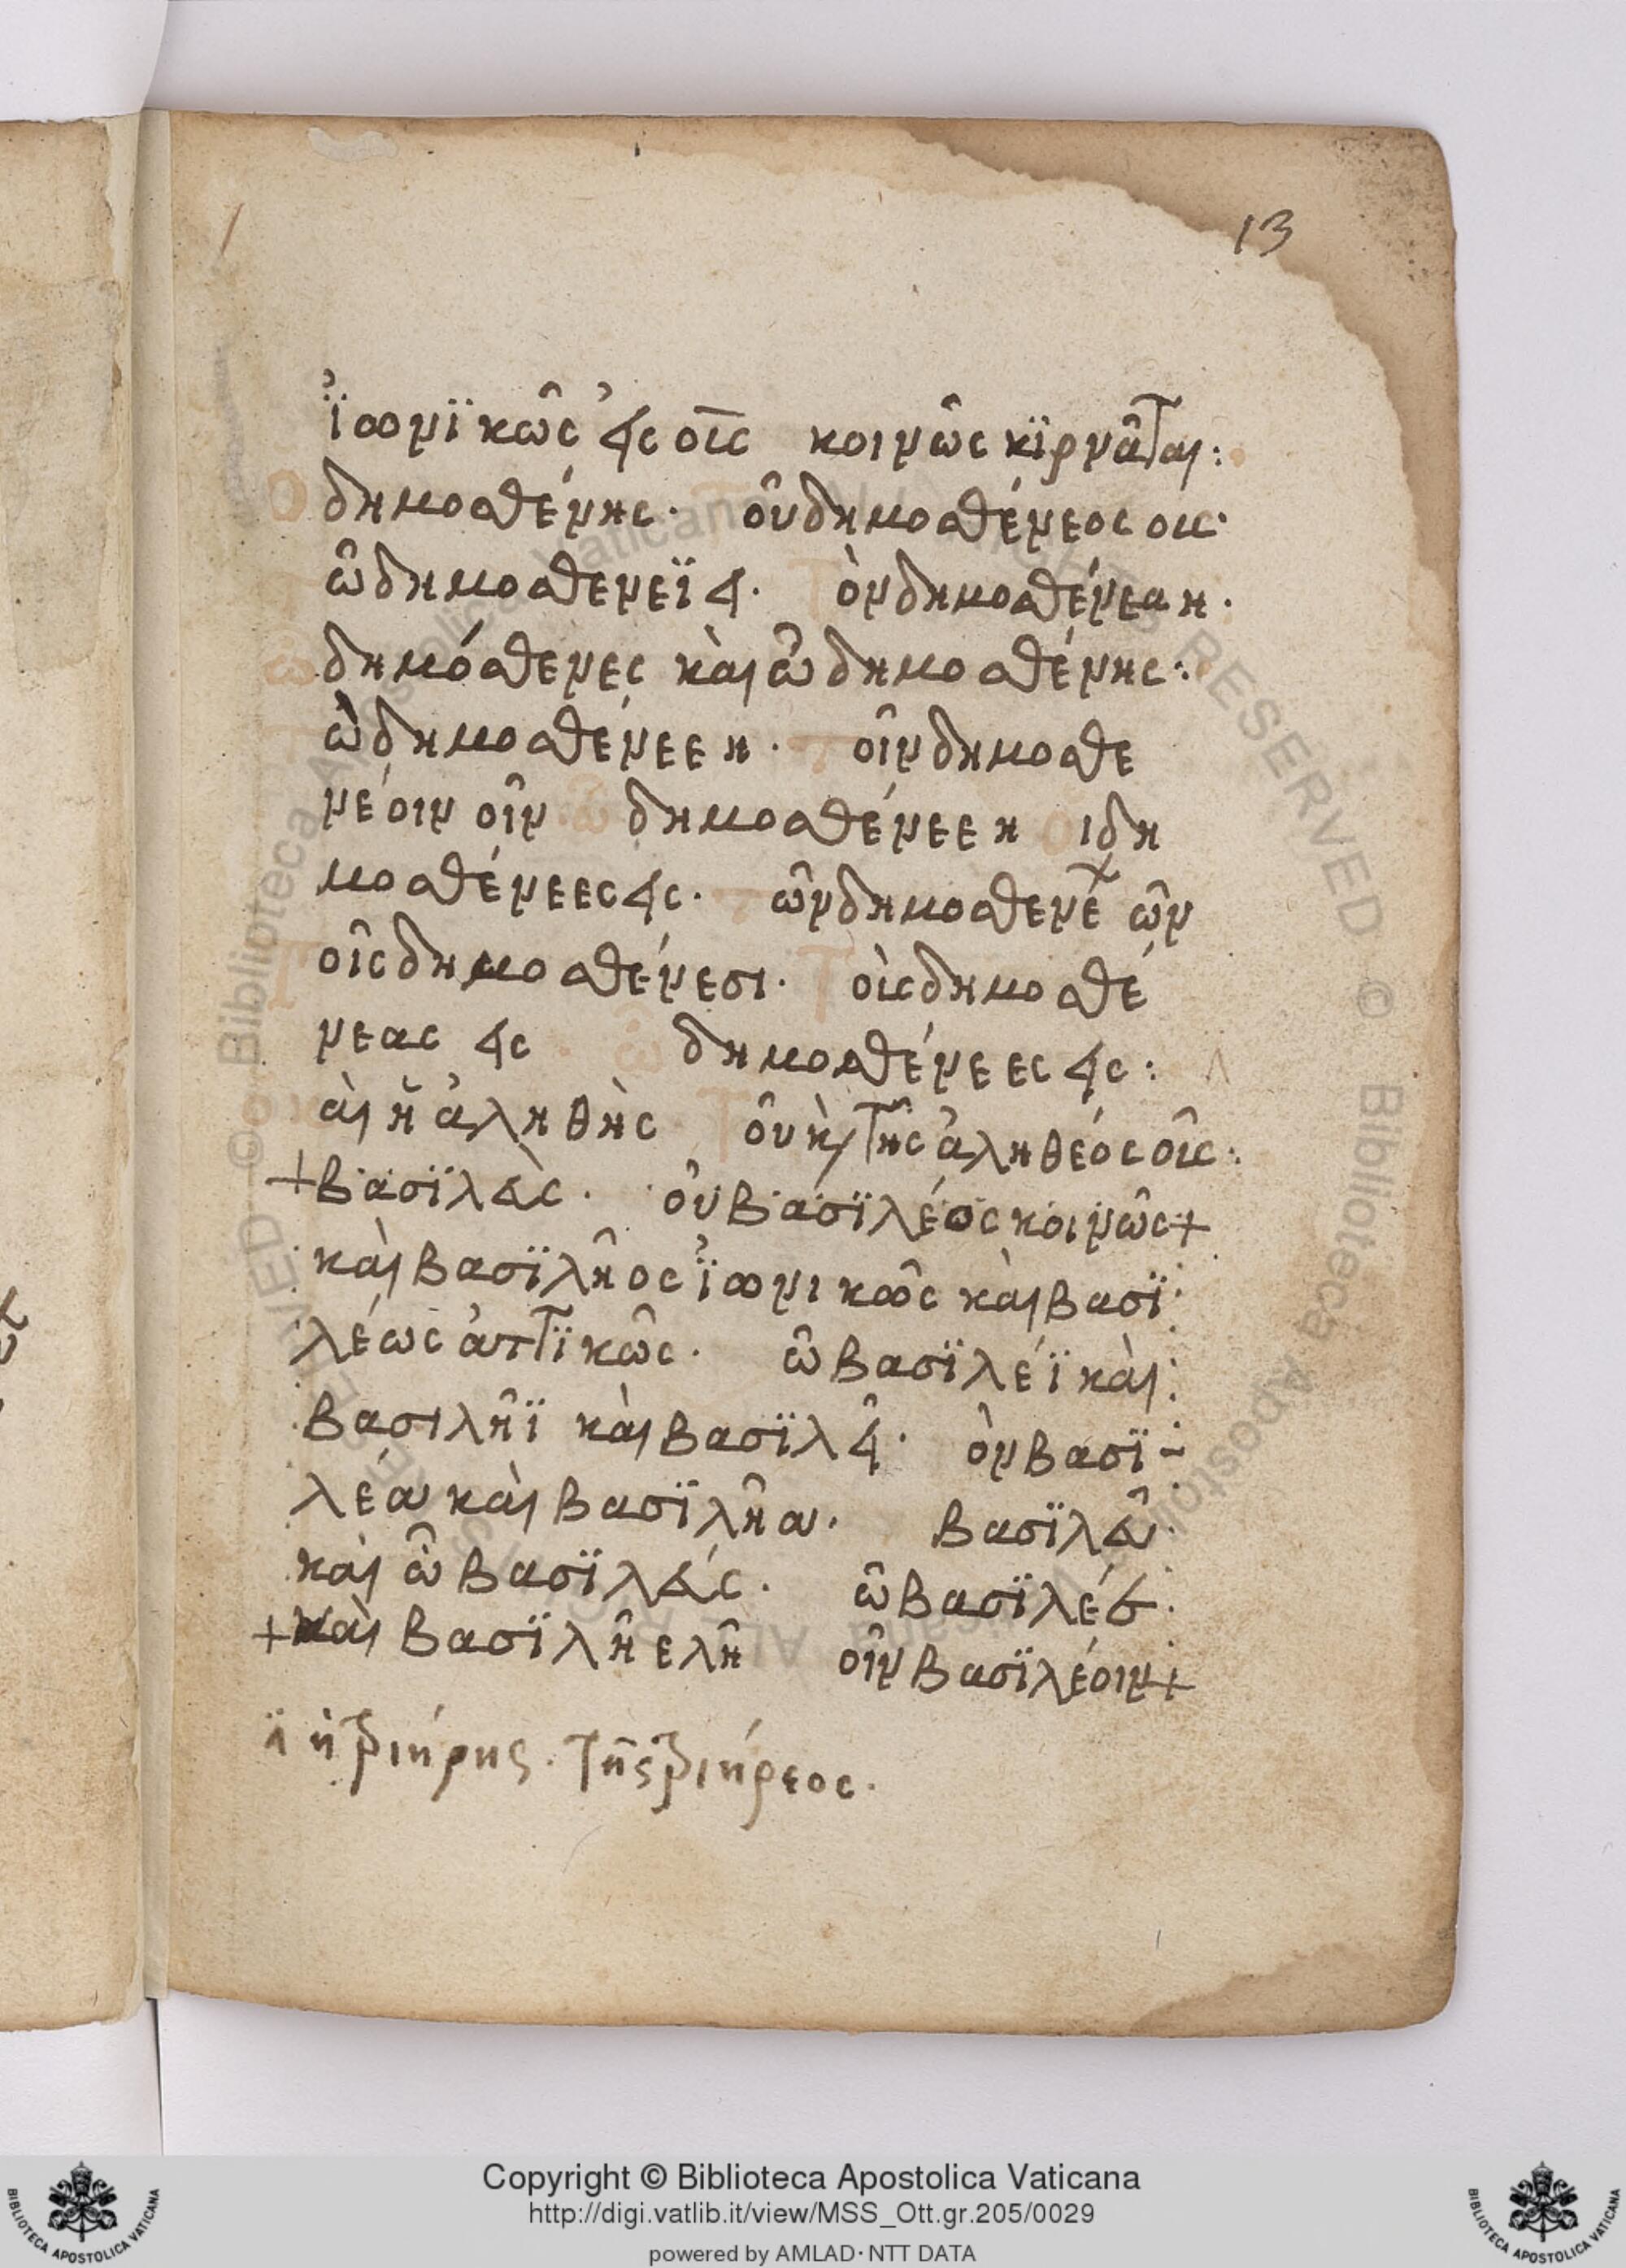 13
ἰωνικῶς εις οῖς κοινῶς κιρνᾶται:
Ο δημοσθένης· τοῦ δημοσθένεος ους·
τῶ δημοσθενεϊ ει· Τὸν δημοσθένεα η·
ῶ δημόσθενες καὶ ῶ δημοσθένης:
Τὼ δημοσθένεε η· τοῖν δημοσθε
νέοιν οῖν ῶ δημοσθένεε η Οι δη
μοσθένεες εις· τῶν δημοσθενέων ῶν
Τοῖς δημοσθένεσι· Τοὺς δημοσθέ
νεας εις· ῶ δημοσθένεες εις:
ὁ καὶ ἡ ἀληθὴς Τοῦ καὶ τῆς ἀληθέος οῦς:
+ βασϊλεὺς· οῦ βασϊλέος κοινῶς +
καὶ βασϊλῆος ἰωνικῶς καὶ βασϊ
λέως ἀττϊκῶς· ῶ βασϊλέϊ καὶ
βασιλῆϊ καὶ βασϊλεῖ· ὸν βασϊ-
λέα καὶ βασϊλῆα· βασϊλεῦ·
καὶ ῶ βασϊλεύς· ῶ βασϊλέε·
+ καὶ βασϊλῆε λῆ οῖν βασϊλέοιν +
ἡ τριήρης· τῆς τριήρεος·
Copyright © Biblioteca Apostolica Vaticana
http://digi.vatlib.it/view/MSS_Ott.gr.205/0029
powered by AMLAD·NTT DATA
BIBLIOTECA APOSTOLICA VATICANA
BIBLIOTECA APOSTOLICA VATICANA